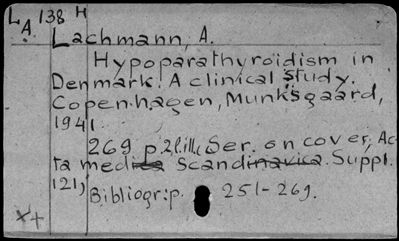 LA 138 H
Lachmann, A.
Hypoparathyroidism in
Denmark. A clinical study.
Copenhagen, Munksgaard,
1941
269 p. ill., Ser. on cover, Ac-
ta medica scandinavica. Suppl.
121,
Bibliogr: p. 251-269.